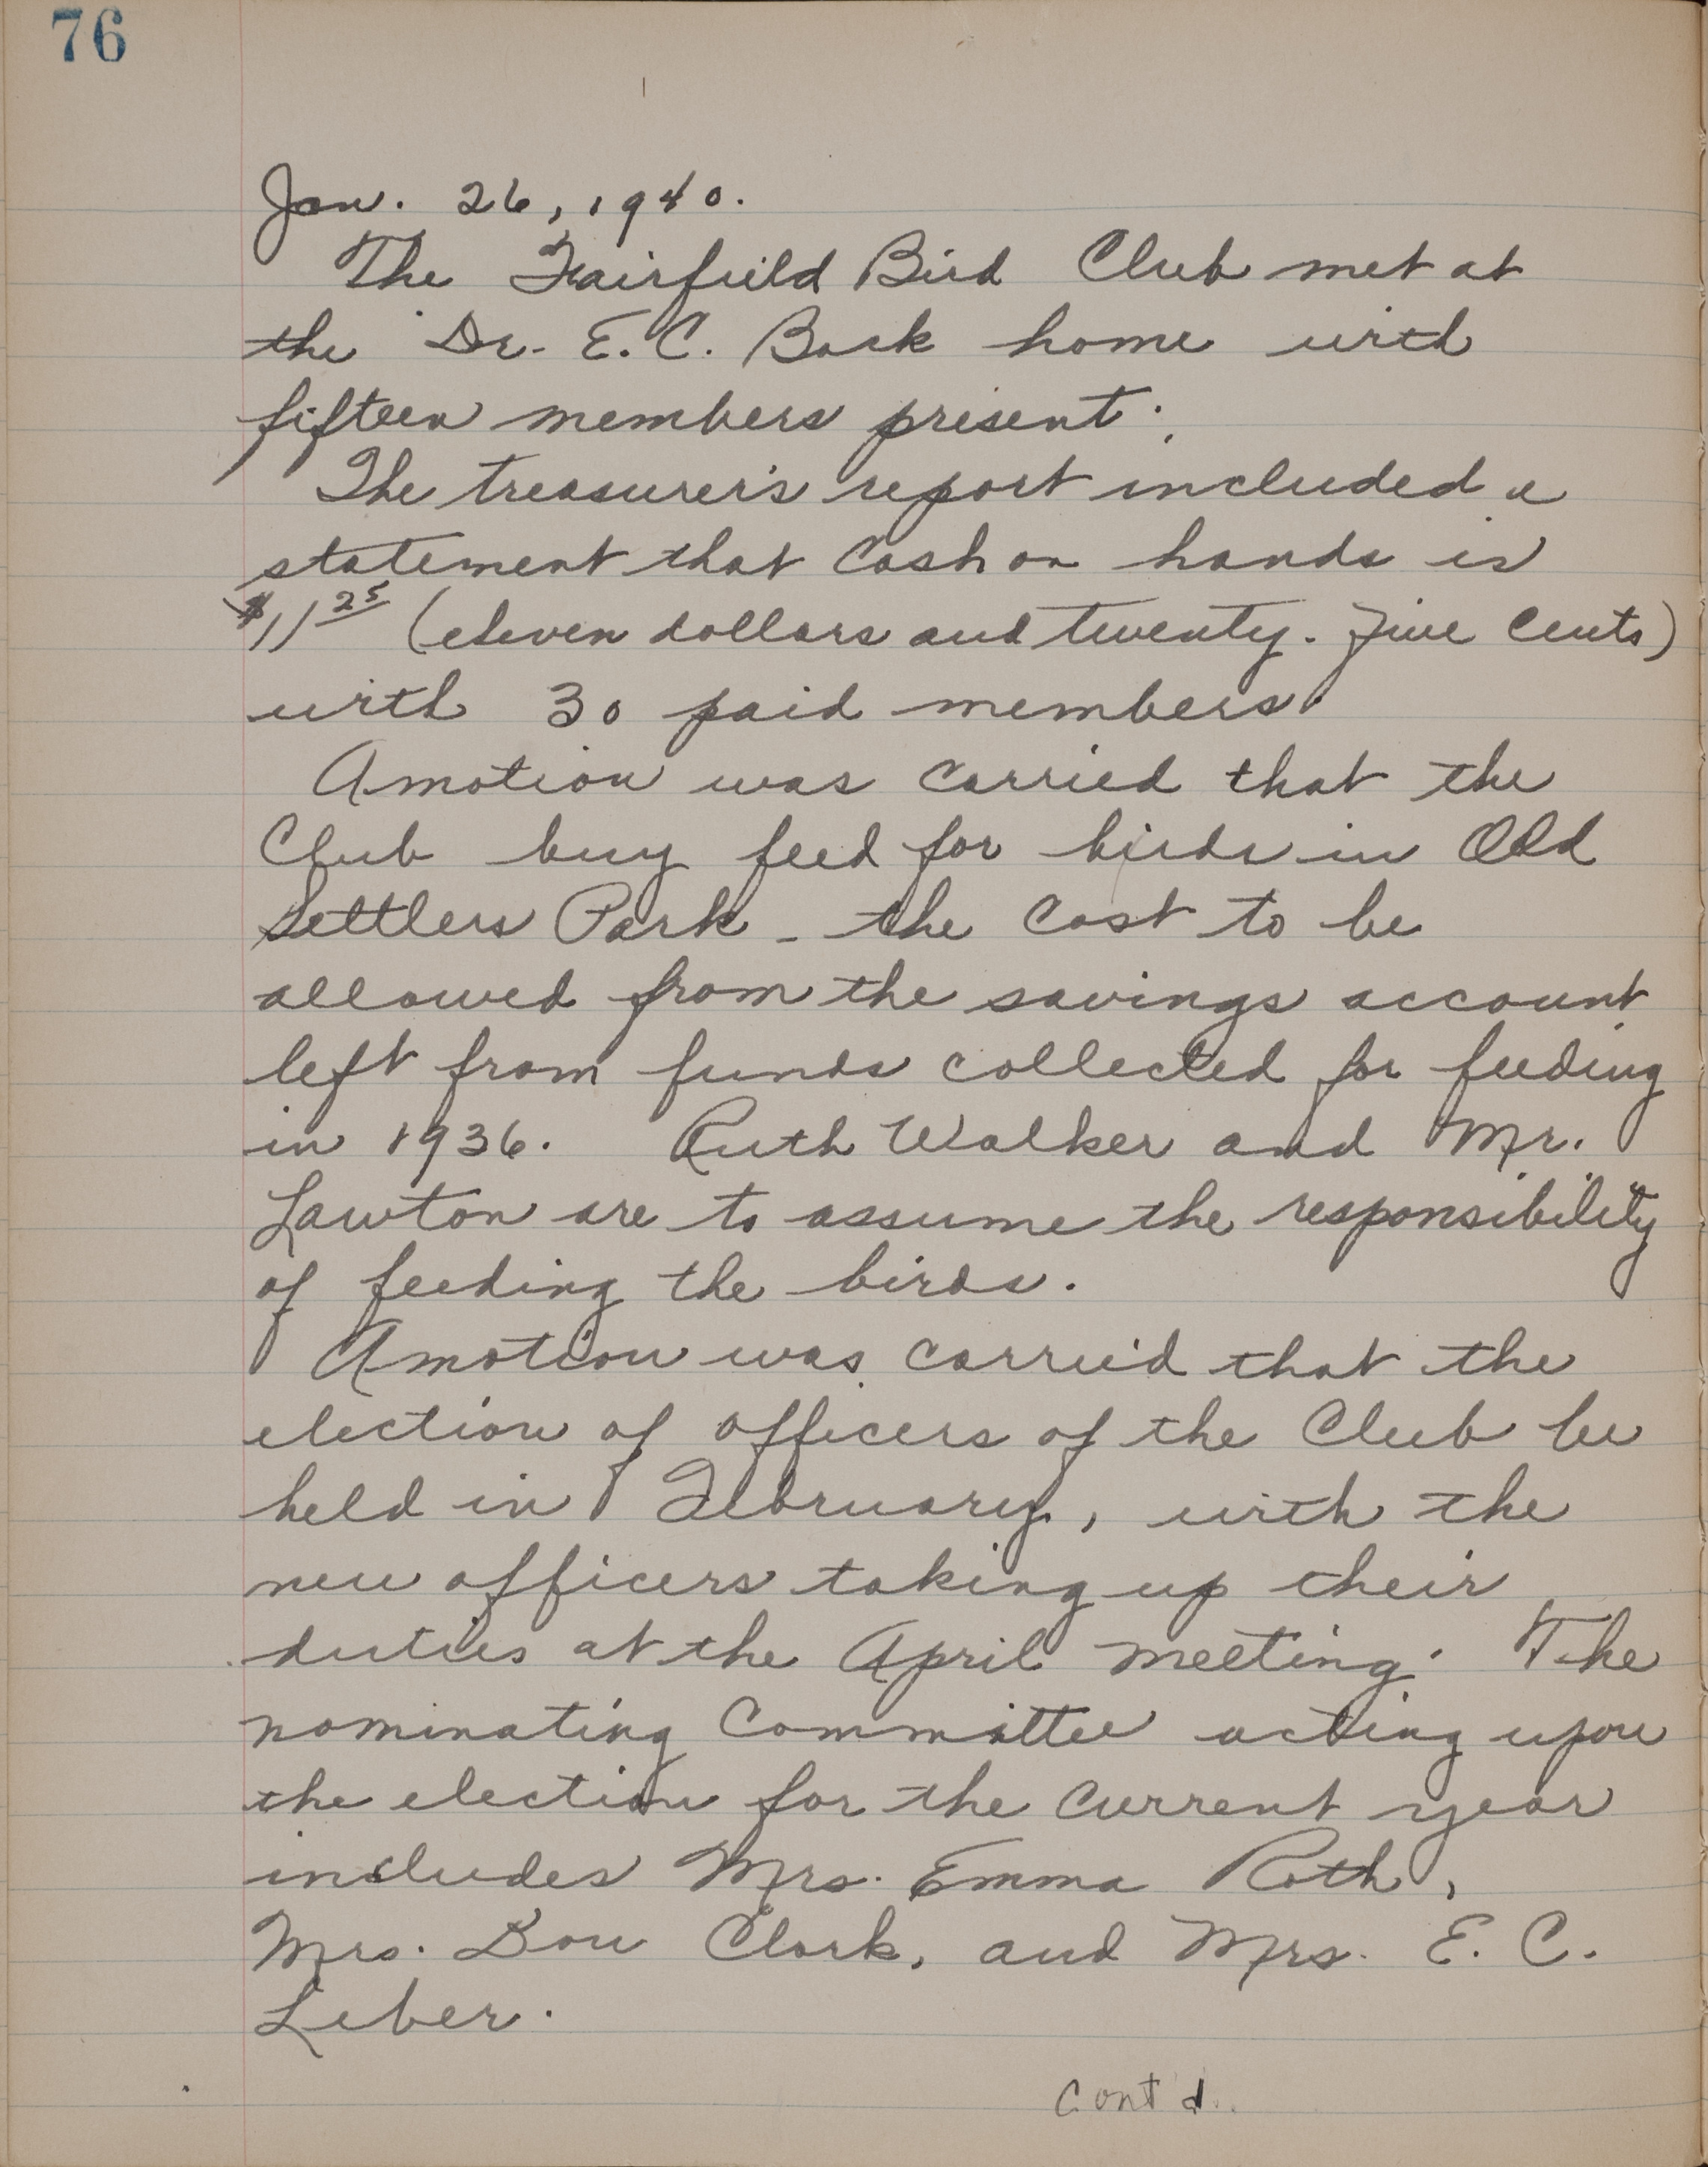 76
Jan. 26, 1940.
The Fairfield Bird Club met at
the Dr. E. C. Bock home with
fifteen members present.
The treasurer's report included a
statement that cash on hands is
$11 25 (eleven dollars and twenty-five cents)
with 30 paid members.
A motion was carried that the
Club buy feed for birds in Old
Settlers Park - the cost to be
allowed from the savings account
left from funds collected for feeding
in 1936. Ruth Walker and Mr.
Lawton are to assume the responsibility
of feeding the birds.
A motion was carried that the
election of officers of the Club be
held in February, with the
new officers taking up their
duties at the April meeting. The
nominating Committee acting upon
the election for the current year
includes Mrs. Emma Roth,
Mrs. Don Clark, and Mrs. E. C.
Leber.
Cont'd.